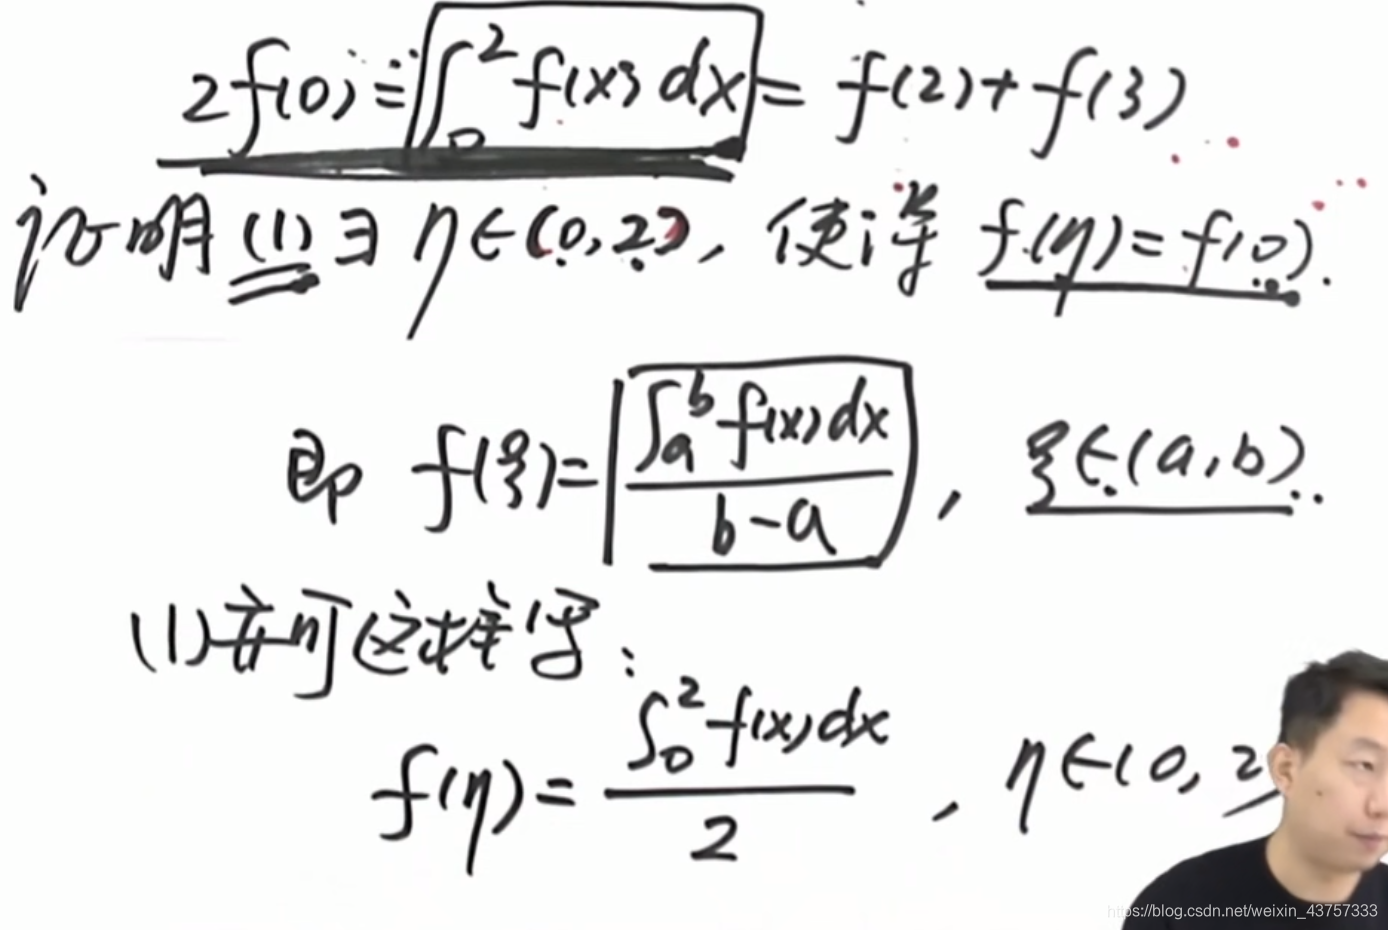 2f(0) = ∫₀² f(x) dx = f(2) + f(3)
证明 (1) ∃ η∈(0,2), 使得 f(η) = f(0).
即 f(ξ) = ∫ₐᵇ f(x)dx / (b-a) , ξ∈(a,b).
(1)亦可这样写:
f(η) = ∫₀² f(x)dx / 2 , η∈(0,2
https://blog.csdn.net/weixin_43757333